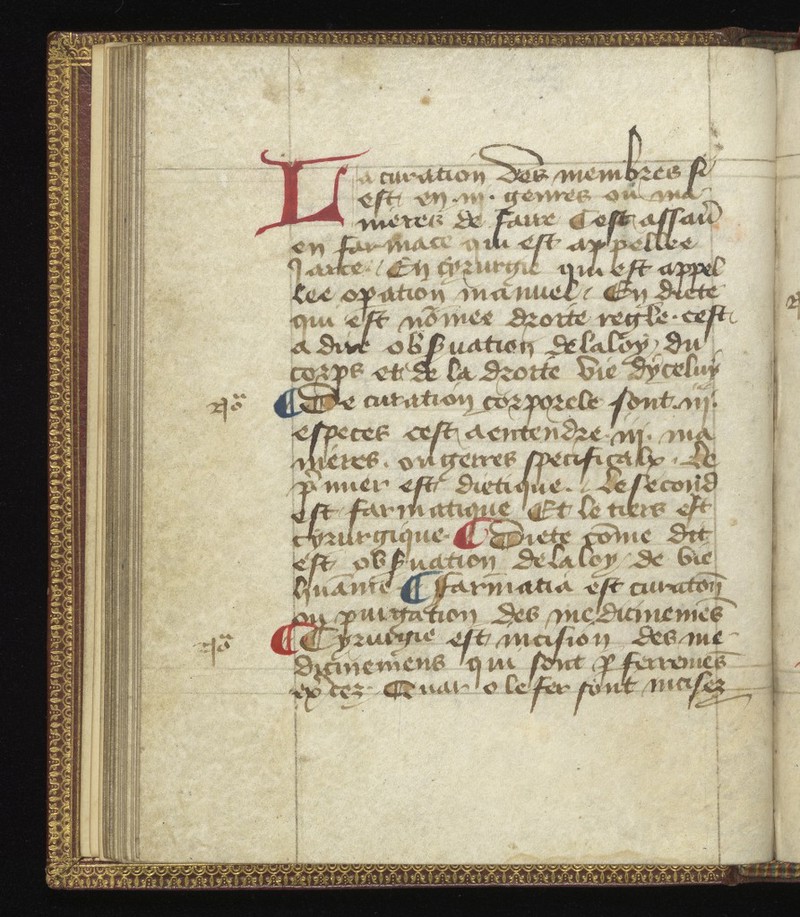 La curation des membres si
est en .iii. genres ou ma
nieres de faire Cest assau̅
en farmace qui est appellee
Jarce. En cyrurgie qui est appel
lee opation manuel. En diete
qui est no̅mee droite regle. cest
a dire obsuation de la loy du
corps et de la droite vie dyceluy
¶ De curation corporele sont .iii.
especes cest a entendre .iii. ma
nieres. ou genres specificalx. Le
p̅mier est dietique. Le second
est farmatique Et le tiers est
cyrurgique. ¶ Diete co̅me dit
est obsuation de la loy de vie
huma̅ine ¶ Farmatia est curato̅n
ou purgation des medicinemẽs
¶ Cyrurgie est incision des me
dicinemens qui sont p ferremẽs
Quar o le fer sont incisez